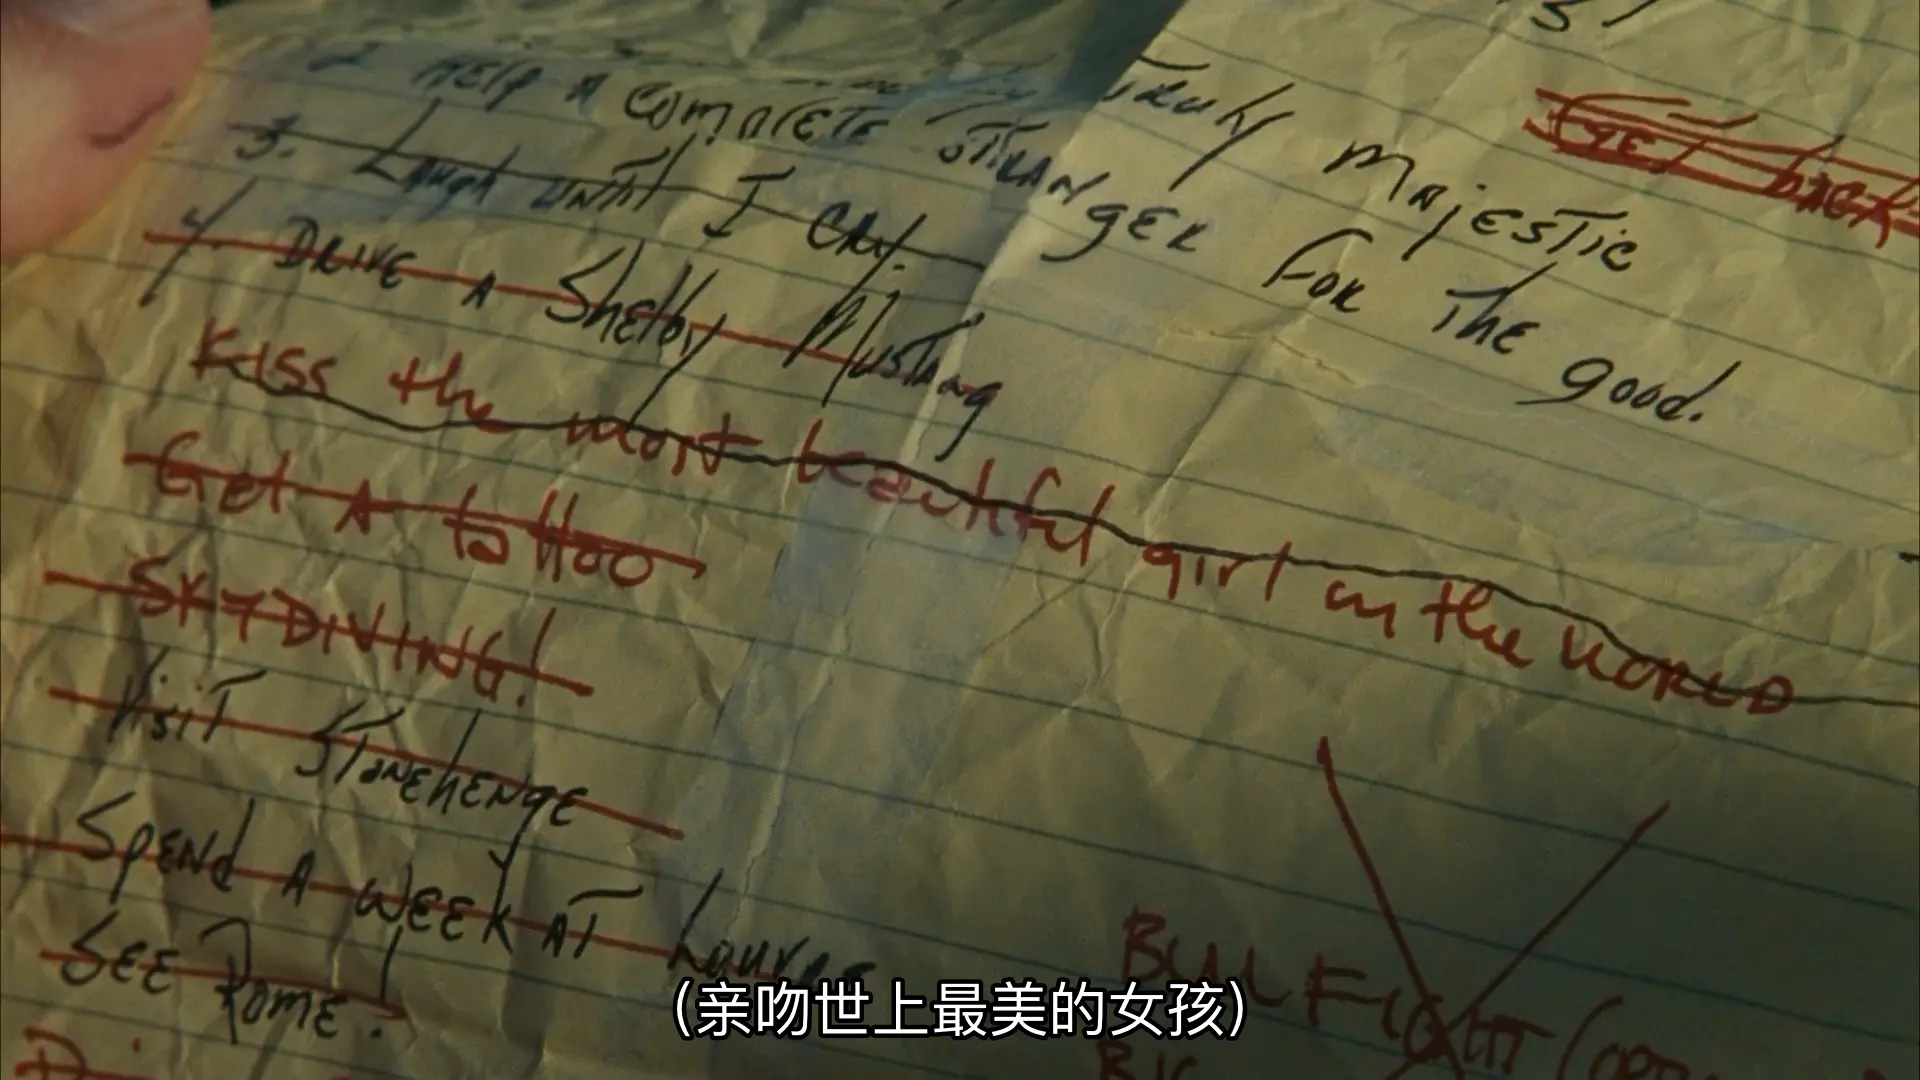 truly majestic
Get back
2 Help a complete stranger for the good.
3. Laugh until I cry.
4. Drive a Shelby Mustang
Kiss the most beautiful girl in the world
Get A tattoo
SKYDIVING!
Visit Stonehenge
Spend A week at Louvre
See Rome!
BULL FIGHT
(亲吻世上最美的女孩)